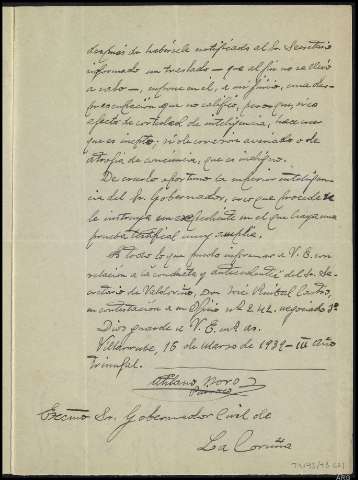 después de habérsele notificado al Sr. Secretario
informado un traslado — que al fin no se llevó
a cabo —, supone en él, a mi juicio, una des-
preocupación que no califico, pero que, si es
efecto de cortedad de inteligencia, hace ver
que es inepto; si de conciencia
atrofia de conciencia, que es indigno.
De creerlo oportuno la superior inteligen-
cia del Sr. Gobernador, creo que procede se
le instruya un expediente en el que haya una
prueba testifical muy amplia.
Es todo lo que puedo informar a V. E. con
relación a la conducta y antecedentes del Sr. Se-
cretario de Valdoviño, Don José Aníbal Castro,
en contestación a su Oficio nº 242, negociado 3º
Dios guarde a V. E. m. a.
Villarrube, 15 de Marzo de 1939 - III Año
Triunfal.
Párroco
Excmo Sr. Gobernador Civil de
La Coruña